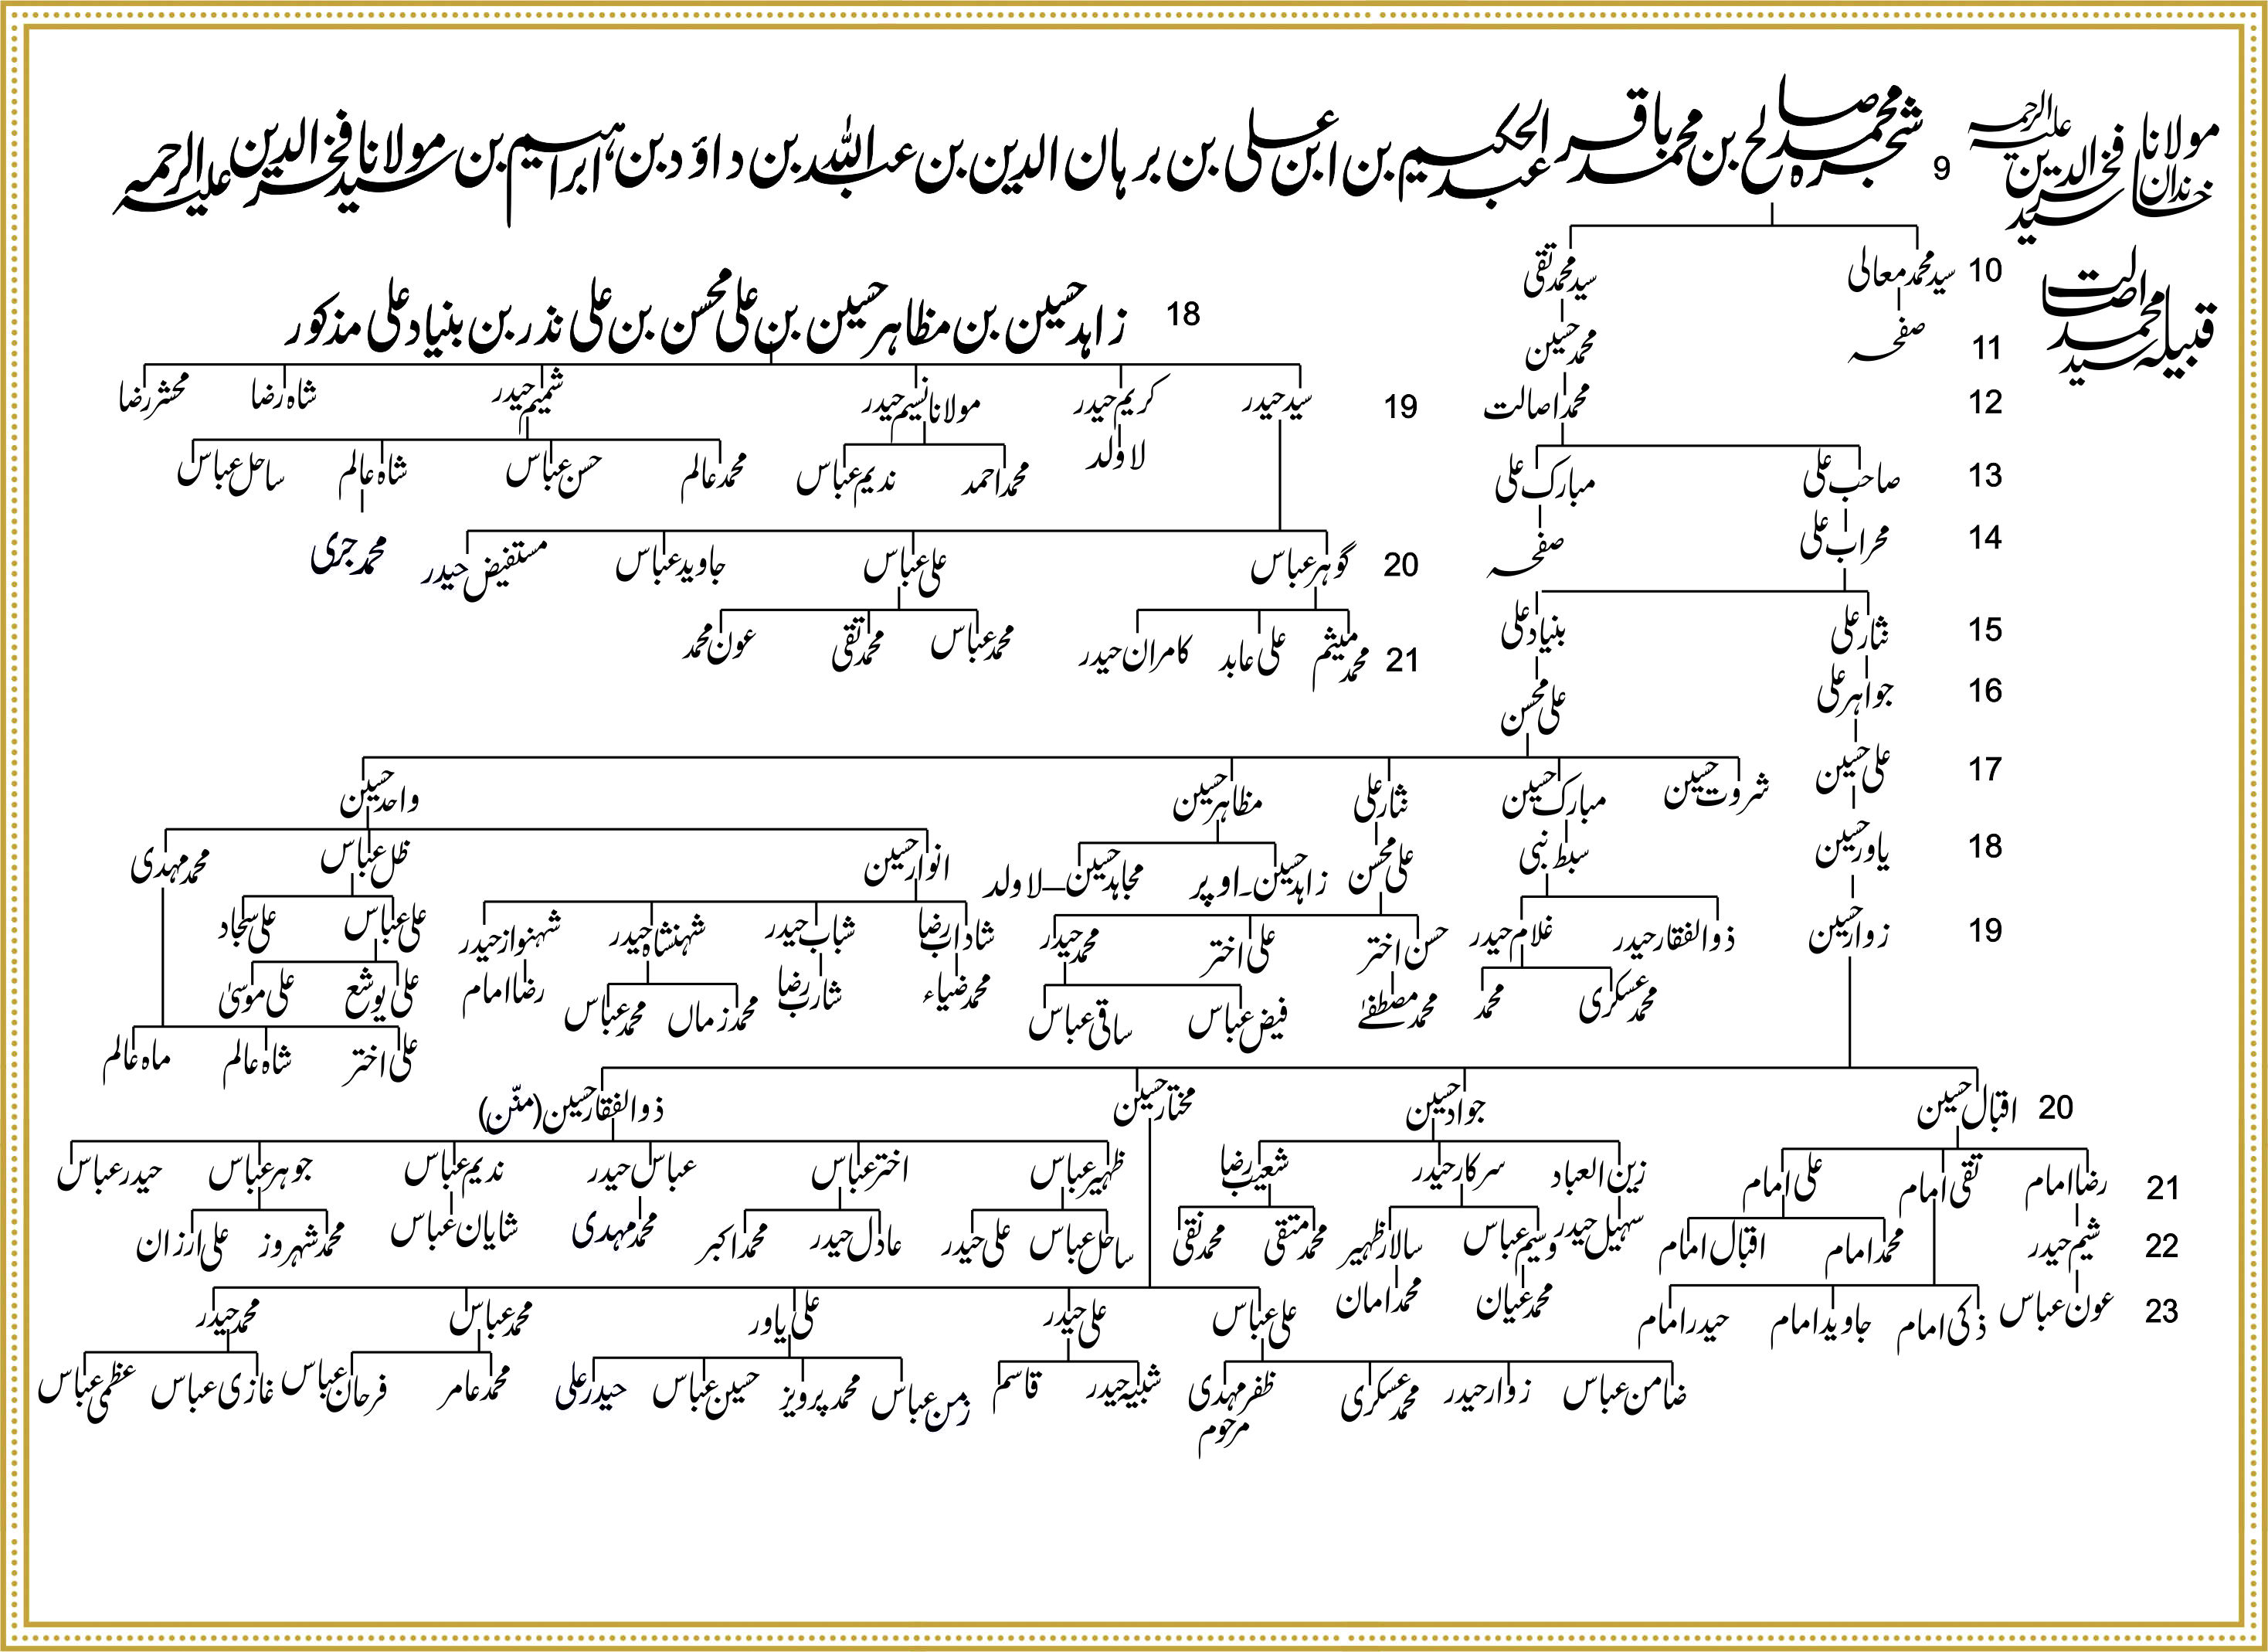 شجرہ محمد صالح بن محمد باقر بن عبدالحکیم بن ابن علی بن برہان الدین بن عبداللہ بن داؤد بن ابراہیم بن مولانا سید فخرالدین علیہ الرحمہ
9
خاندان مولانا سید فخرالدین علیہ الرحمہ
قبیلہ سید محمد اصالت
10 سید محمد معالی سید محمد تقی
11 صفحہ محمد حسین
12 محمد اصالت
13 صاحب علی مبارک علی
14 محراب علی صفحہ
15 نثار علی بنیاد علی
16 جواہر علی علی محسن
18 زاہد حسین بن مظاہر حسین بن علی محسن بن علی نذر بن بنیاد علی مذکور
19 سید حیدر کریم حیدر مولانا نسیم حیدر شمیم حیدر شاہ رضا محشر رضا
لاولد محمد احمد ندیم عباس محمد عالم حسن عباس شاہ عالم ساحل عباس
محمد جری
20 گوہر عباس علی عباس جاوید عباس مستفیض حیدر
21 محمد میثم علی عابد کامران حیدر محمد عباس محمد تقی عون محمد
17 علی حسین ثروت حسین مبارک حسین نثار علی مظاہر حسین واحد حسین
18 یاور حسین سبط نبی علی محسن زاہد حسین۔اوپر مجاہد حسین—لاولد انوار حسین ظل عباس محمد مہدی
19 زوار حسین ذوالفقار حیدر غلام حیدر حسن اختر علی اختر محمد حیدر شاداب رضا شباب حیدر شہنشاہ حیدر شہنواز حیدر علی عباس علی سجاد
محمد عسکری محمد محمد مصطفےٰ فیض عباس ساقی عباس محمد ضیاء شارب رضا محمد زماں محمد عباس رضا امام علی یوشع علی موسیٰ
علی اختر شاہ عالم ماہ عالم
20 اقبال حسین جواد حسین مختار حسین ذوالفقار حسین (منّن)
21 رضا امام تقی امام علی امام زین العباد سرکار حیدر شعیب رضا ظہیر عباس اختر عباس عباس حیدر ندیم عباس جوہر عباس حیدر عباس
22 شیم حیدر محمد امام اقبال امام سہیل حیدر وسیم عباس سالار ظہیر محمد متقی محمد نقی ساحل عباس علی حیدر عادل حیدر محمد اکبر محمد مہدی شایان عباس محمد شہروز علی ارزان
23 عون عباس ذکی امام جاوید امام حیدر امام محمد عیان محمد امان علی عباس علی حیدر علی یاور محمد عباس محمد حیدر
ضامن عباس زوار حیدر محمد عسکری ظفر مہدی مرحوم شبیہ حیدر قاسم زمن عباس محمد پرویز حسین عباس حیدر علی محمد عامر فرحان عباس غازی عباس عظمی عباس